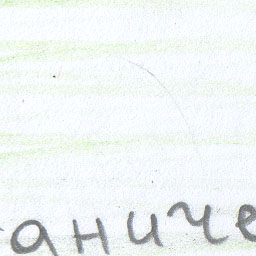 аниче